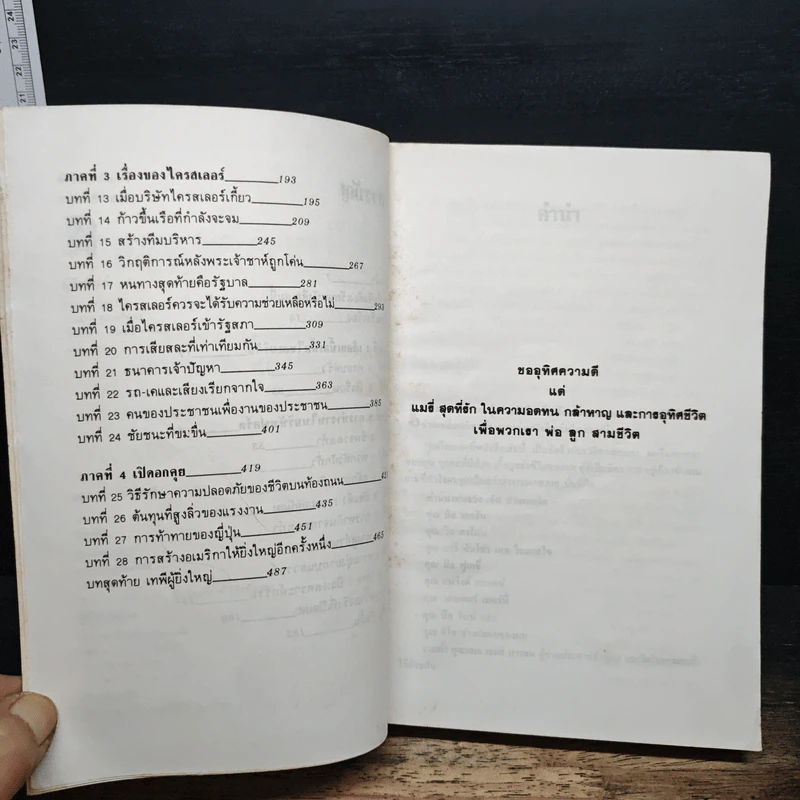 ภาคที่ 3 เรื่องของไครสเลอร์________193
บทที่ 13 เมื่อบริษัทไครสเลอร์เกี้ยว________195
บทที่ 14 ก้าวขึ้นเรือที่กำลังจะจม________209
บทที่ 15 สร้างทีมบริหาร________245
บทที่ 16 วิกฤติการณ์หลังพระเจ้าชาห์ถูกโค่น________267
บทที่ 17 หนทางสุดท้ายคือรัฐบาล________281
บทที่ 18 ไครสเลอร์ควรจะได้รับความช่วยเหลือหรือไม่________293
บทที่ 19 เมื่อไครสเลอร์เข้ารัฐสภา________309
บทที่ 20 การเสียสละที่เท่าเทียมกัน________331
บทที่ 21 ธนาคารเจ้าปัญหา________345
บทที่ 22 รถ-เคและเสียงเรียกจากใจ________363
บทที่ 23 คนของประชาชนเพื่องานของประชาชน________385
บทที่ 24 ชัยชนะที่ขมขื่น________401
ภาคที่ 4 เปิดอกคุย________419
บทที่ 25 วิธีรักษาความปลอดภัยของชีวิตบนท้องถนน________
บทที่ 26 ต้นทุนที่สูงลิ่วของแรงงาน________435
บทที่ 27 การท้าทายของญี่ปุ่น________451
บทที่ 28 การสร้างอเมริกาให้ยิ่งใหญ่อีกครั้งหนึ่ง________465
บทสุดท้าย เทพีผู้ยิ่งใหญ่________487
ขออุทิศความดี
แด่
แมรี่ สุดที่รัก ในความอดทน กล้าหาญ และการอุทิศชีวิต
เพื่อพวกเรา พ่อ ลูก สามชีวิต
24
23
22
21